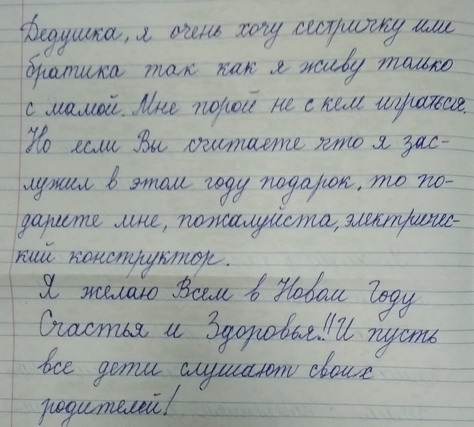 Дедушка, я очень хочу сестричку или
братика так как я живу только
с мамой. Мне порой не с кем играться.
Но если Вы считаете что я зас-
лужил в этом году подарок, то по-
дарите мне, пожалуйста, электричес-
кий конструктор.
Я желаю Всем в Новом Году
Счастья и Здоровья!! И пусть
все дети слушают своих
родителей!